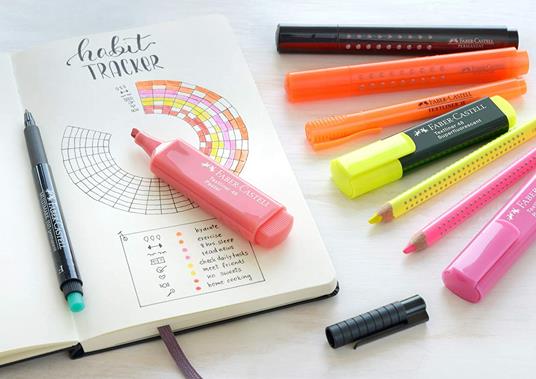 habit
TRACKER
hydrate
exercise
8 hrs. sleep
read news
check daily tasks
meet friends
no sweets
home cooking
FABER-CASTELL
Textliner 46
Pastel
FABER-CASTELL
PERMANENT
FABER-CASTELL
TEXTLINER
FABER-CASTELL
Textliner 48
Superfluorescent
FABER-CASTELL